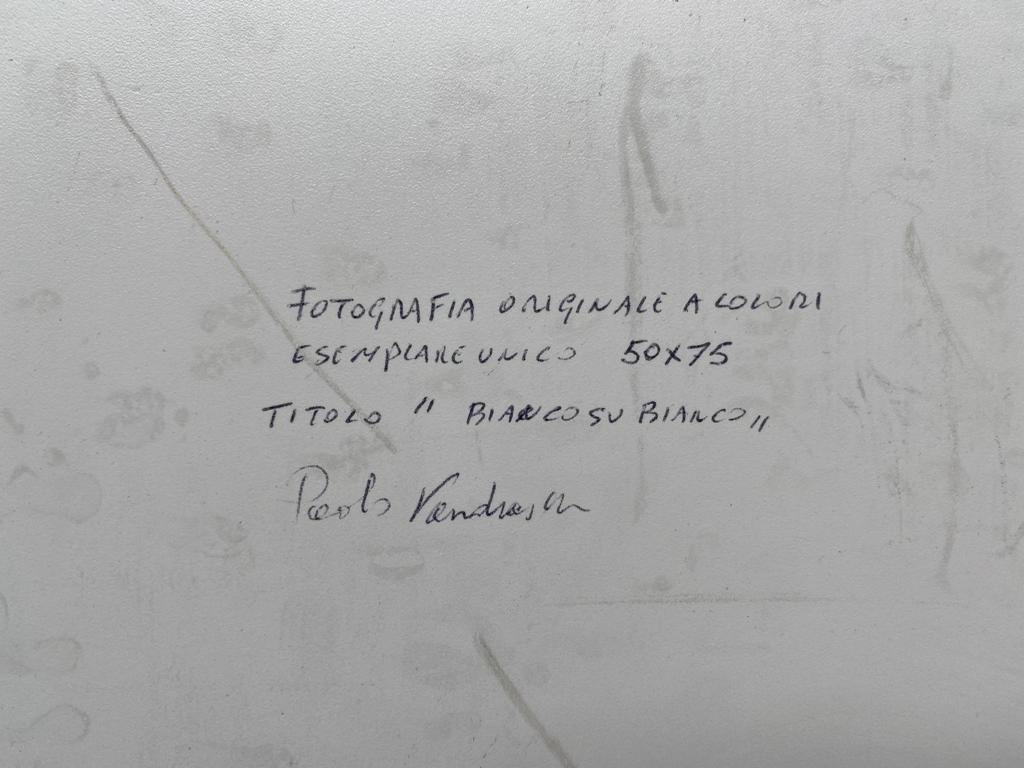 FOTOGRAFIA ORIGINALE A COLORI
ESEMPLARE UNICO 50X75
TITOLO " BIANCO SU BIANCO "
Paolo